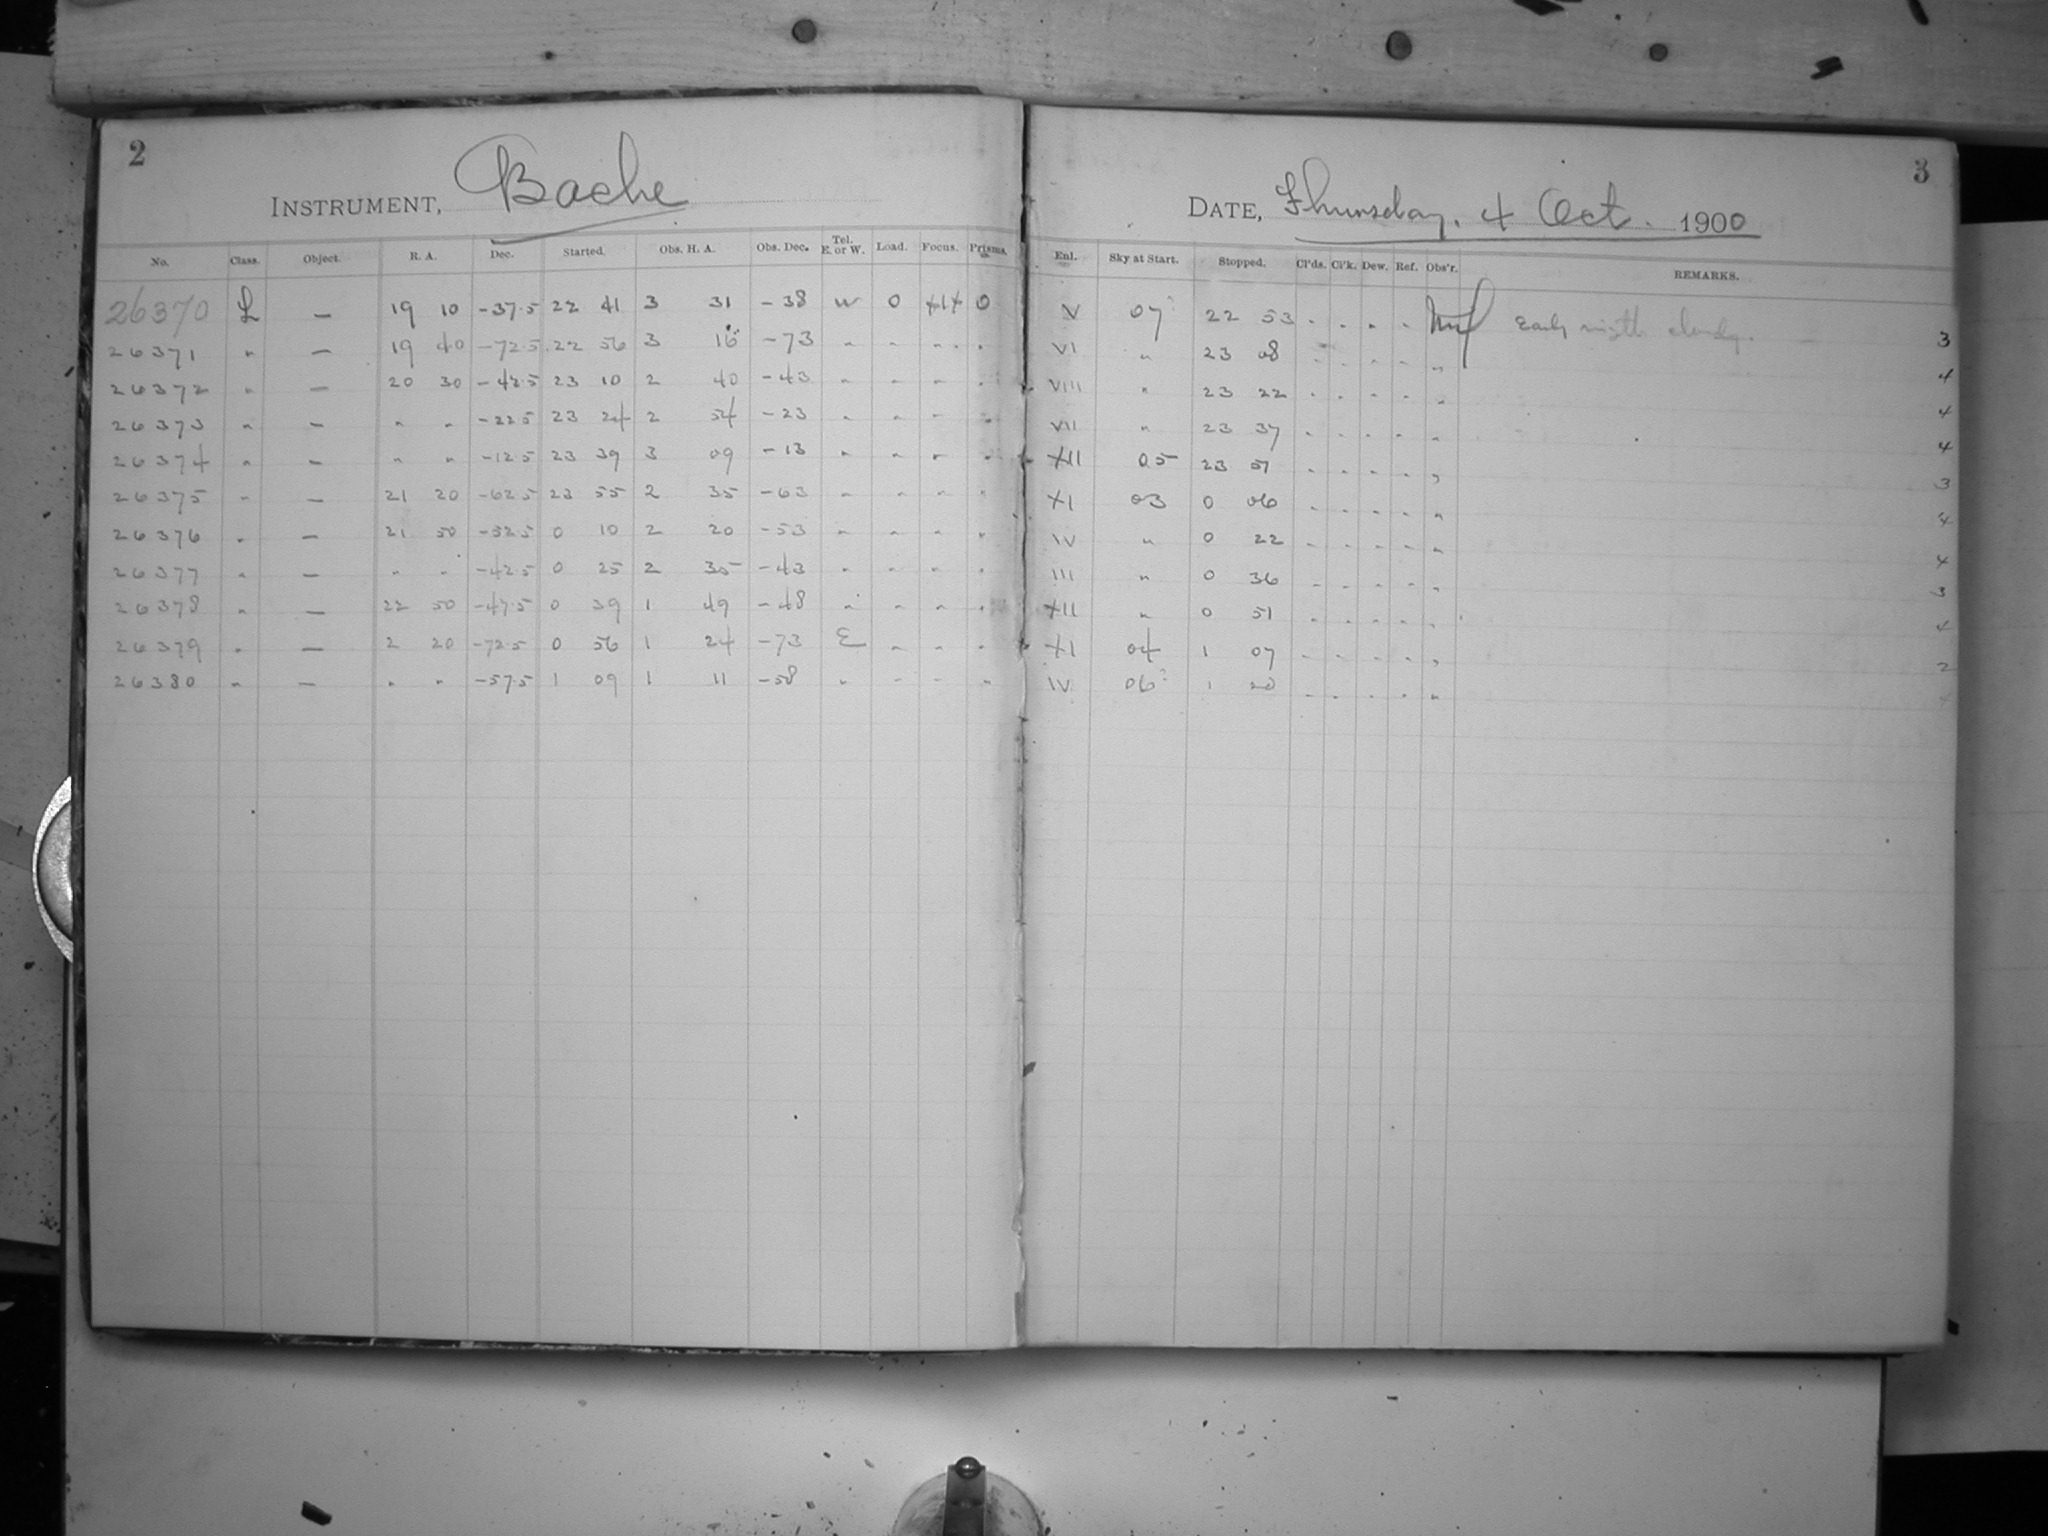 2
INSTRUMENT, Bache
No. Class. Object. R. A. Dec. Started. Obs. H. A. Obs. Dec. Tel. E. or W. Load. Focus. Prisms.
26370 L — 19 10 -37.5 22 41 3 31 -38 W 0 0
26371 " — 19 40 -72.5 22 56 3 16 -73 " " " "
26372 " — 20 30 -42.5 23 10 2 40 -43 " " " "
26373 " — " " -22.5 23 24 2 54 -23 " " " "
26374 " — " " -12.5 23 39 3 09 -13 " " " "
26375 " — 21 20 -62.5 23 55 2 35 -63 " " " "
26376 " — 21 50 -52.5 0 10 2 20 -53 " " " "
26377 " — " " -42.5 0 25 2 35 -43 " " " "
26378 " — 22 50 -47.5 0 39 1 49 -48 " " " "
26379 " — 2 20 -72.5 0 56 1 24 -73 E " " "
26380 " — " " -57.5 1 09 1 11 -58 " " " "
3
DATE, Thursday, 4 Oct. 1900
Enl. Sky at Start. Stopped. Cl'ds. Cl'k. Dew. Ref. Obs'r. REMARKS.
V 07? 22 53 . . . . Early night cloudy. 3
VI " 23 08 . . . . " 4
VIII " 23 22 . . . . " 4
VII " 23 37 . . . . " 4
XII 05 23 51 . . . . " 3
XI 03 0 06 . . . . " 4
IV " 0 22 . . . . " 4
III " 0 36 . . . . " 3
XII " 0 51 . . . . " 4
XI 04 1 07 . . . . " 2
IV 06? 1 20 . . . . "